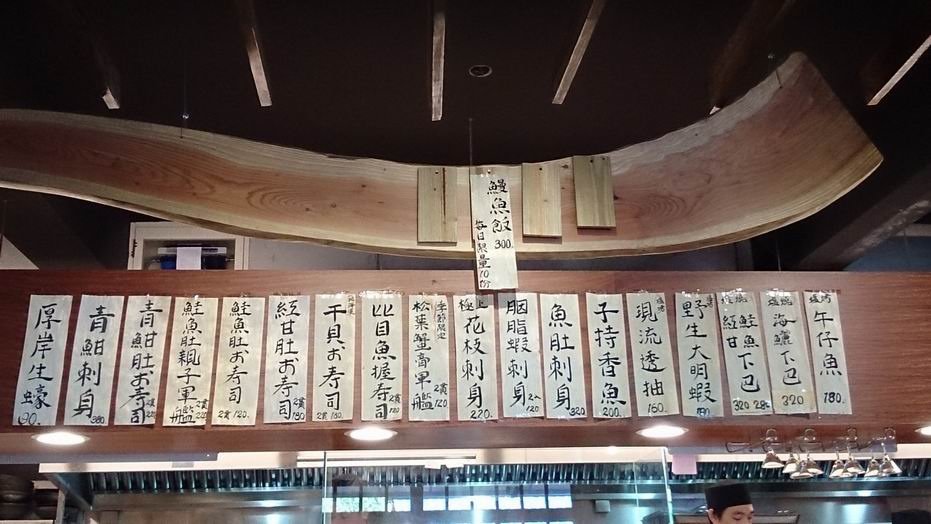 鰻魚飯 300.
每日限量10份
厚岸生蠔 90.
青魽刺身 380
青魽肚お寿司 2貫 220
鮭魚肚親子軍艦 2貫 120.
鮭魚肚お寿司 2貫 120.
紅甘肚お寿司 2貫 180
干貝お寿司 2貫 180.
比目魚握寿司 2貫 120
季節限定
松葉蟹膏軍艦 2貫 120.
極上花枝刺身 220.
胭脂蝦刺身
魚肚刺身 320.
子持香魚 200.
現流透抽 160.
野生大明蝦 180
鮭魚下巴 280
紅甘下巴 320
海鱺下巴 320
午仔魚 180.